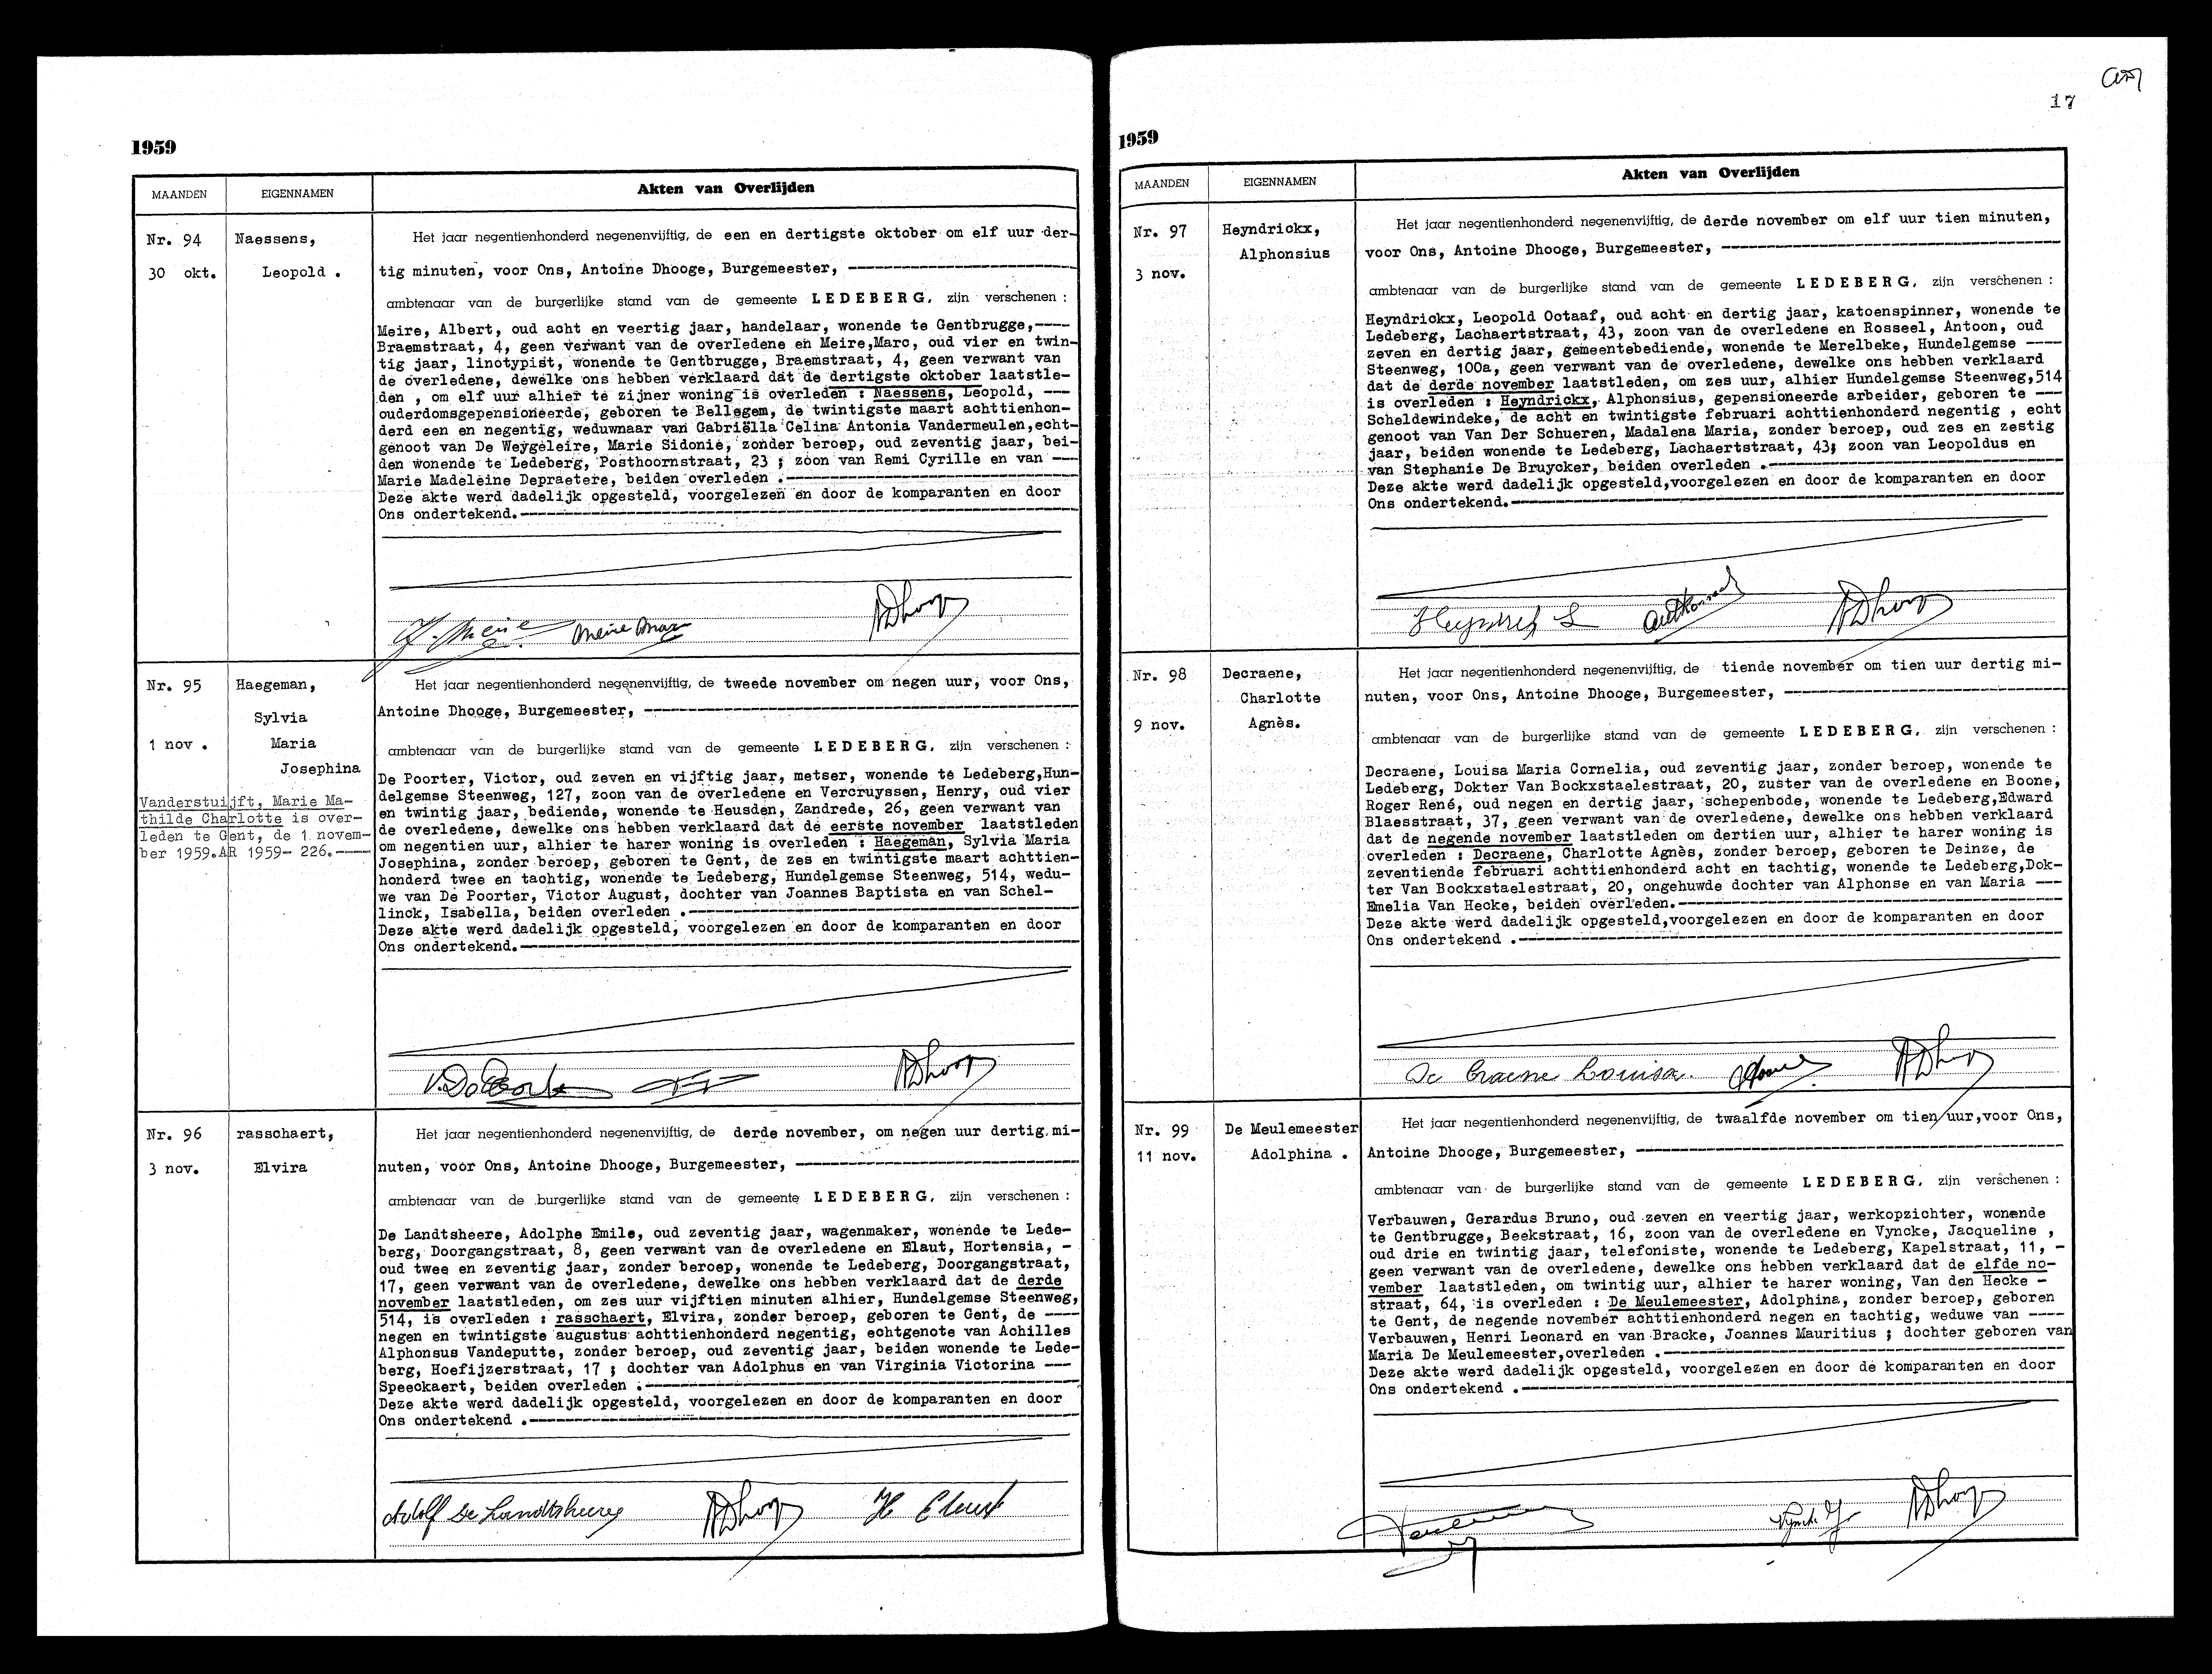 1959
MAANDEN
EIGENNAMEN
Akten van Overlijden
Nr. 94
30 okt.
Naessens,
Leopold .
Het jaar negentienhonderd negenenvijftig, de een en dertigste oktober om elf uur der-
tig minuten, voor Ons, Antoine Dhooge, Burgemeester, ----
ambtenaar van de burgerlijke stand van de gemeente LEDEBERG, zijn verschenen :
Meire, Albert, oud acht en veertig jaar, handelaar, wonende te Gentbrugge,----
Braemstraat, 4, geen verwant van de overledene en Meire,Marc, oud vier en twin-
tig jaar, linotypist, wonende te Gentbrugge, Braemstraat, 4, geen verwant van
de overledene, dewelke ons hebben verklaard dat de dertigste oktober laatstle-
den , om elf uur alhier te zijner woning is overleden : Naessens, Leopold, ---
ouderdomsgepensioneerde, geboren te Bellegem, de twintigste maart achttienhon-
derd een en negentig, weduwnaar van Gabriëlla Celina Antonia Vandermeulen,echt-
genoot van De Weygeleire, Marie Sidonie, zonder beroep, oud zeventig jaar, bei-
den wonende te Ledeberg, Posthoornstraat, 23 ; zoon van Remi Cyrille en van ---
Marie Madeleine Depraetere, beiden overleden .----
Deze akte werd dadelijk opgesteld, voorgelezen en door de komparanten en door
Ons ondertekend.----
Meire Meire Marc ADhooge
Nr. 95
1 nov .
Haegeman,
Sylvia
Maria
Josephina
Vanderstuijft, Marie Ma-
thilde Charlotte is over-
leden te Gent, de 1 novem-
ber 1959.AR 1959- 226.----
Het jaar negentienhonderd negenenvijftig, de tweede november om negen uur, voor Ons,
Antoine Dhooge, Burgemeester, ----
ambtenaar van de burgerlijke stand van de gemeente LEDEBERG, zijn verschenen :
De Poorter, Victor, oud zeven en vijftig jaar, metser, wonende te Ledeberg,Hun-
delgemse Steenweg, 127, zoon van de overledene en Vercruyssen, Henry, oud vier
en twintig jaar, bediende, wonende te Heusden, Zandrede, 26, geen verwant van
de overledene, dewelke ons hebben verklaard dat de eerste november laatstleden
om negentien uur, alhier te harer woning is overleden : Haegeman, Sylvia Maria
Josephina, zonder beroep, geboren te Gent, de zes en twintigste maart achttien-
honderd twee en tachtig, wonende te Ledeberg, Hundelgemse Steenweg, 514, wedu-
we van De Poorter, Victor August, dochter van Joannes Baptista en van Schel-
linck, Isabella, beiden overleden .----
Deze akte werd dadelijk opgesteld, voorgelezen en door de komparanten en door
Ons ondertekend.----
V.DePoorter ADhooge
Nr. 96
3 nov.
rasschaert,
Elvira
Het jaar negentienhonderd negenenvijftig, de derde november, om negen uur dertig mi-
nuten, voor Ons, Antoine Dhooge, Burgemeester, ----
ambtenaar van de burgerlijke stand van de gemeente LEDEBERG, zijn verschenen :
De Landtsheere, Adolphe Emile, oud zeventig jaar, wagenmaker, wonende te Lede-
berg, Doorgangstraat, 8, geen verwant van de overledene en Elaut, Hortensia, -
oud twee en zeventig jaar, zonder beroep, wonende te Ledeberg, Doorgangstraat,
17, geen verwant van de overledene, dewelke ons hebben verklaard dat de derde
november laatstleden, om zes uur vijftien minuten alhier, Hundelgemse Steenweg,
514, is overleden : rasschaert, Elvira, zonder beroep, geboren te Gent, de ----
negen en twintigste augustus achttienhonderd negentig, echtgenote van Achilles
Alphonsus Vandeputte, zonder beroep, oud zeventig jaar, beiden wonende te Lede-
berg, Hoefijzerstraat, 17 ; dochter van Adolphus en van Virginia Victorina ---
Speeckaert, beiden overleden .----
Deze akte werd dadelijk opgesteld, voorgelezen en door de komparanten en door
Ons ondertekend .----
Adolf De Landtsheere ADhooge H Elaut
17
1959
MAANDEN
EIGENNAMEN
Akten van Overlijden
Nr. 97
3 nov.
Heyndrickx,
Alphonsius
Het jaar negentienhonderd negenenvijftig, de derde november om elf uur tien minuten,
voor Ons, Antoine Dhooge, Burgemeester, ----
ambtenaar van de burgerlijke stand van de gemeente LEDEBERG, zijn verschenen :
Heyndrickx, Leopold Octaaf, oud acht en dertig jaar, katoenspinner, wonende te
Ledeberg, Lachaertstraat, 43, zoon van de overledene en Rosseel, Antoon, oud
zeven en dertig jaar, gemeentebediende, wonende te Merelbeke, Hundelgemse ----
Steenweg, 100a, geen verwant van de overledene, dewelke ons hebben verklaard
dat de derde november laatstleden, om zes uur, alhier Hundelgemse Steenweg,514
is overleden : Heyndrickx, Alphonsius, gepensioneerde arbeider, geboren te ---
Scheldewindeke, de acht en twintigste februari achttienhonderd negentig , echt
genoot van Van Der Schueren, Madalena Maria, zonder beroep, oud zes en zestig
jaar, beiden wonende te Ledeberg, Lachaertstraat, 43; zoon van Leopoldus en
van Stephanie De Bruycker, beiden overleden .----
Deze akte werd dadelijk opgesteld,voorgelezen en door de komparanten en door
Ons ondertekend.----
ADhooge
Nr. 98
9 nov.
Decraene,
Charlotte
Agnès.
Het jaar negentienhonderd negenenvijftig, de tiende november om tien uur dertig mi-
nuten, voor Ons, Antoine Dhooge, Burgemeester, ----
ambtenaar van de burgerlijke stand van de gemeente LEDEBERG, zijn verschenen :
Decraene, Louisa Maria Cornelia, oud zeventig jaar, zonder beroep, wonende te
Ledeberg, Dokter Van Bockxstaelestraat, 20, zuster van de overledene en Boone,
Roger René, oud negen en dertig jaar, schepenbode, wonende te Ledeberg,Edward
Blaesstraat, 37, geen verwant van de overledene, dewelke ons hebben verklaard
dat de negende november laatstleden om dertien uur, alhier te harer woning is
overleden : Decraene, Charlotte Agnès, zonder beroep, geboren te Deinze, de
zeventiende februari achttienhonderd acht en tachtig, wonende te Ledeberg,Dok-
ter Van Bockxstaelestraat, 20, ongehuwde dochter van Alphonse en van Maria ---
Emelia Van Hecke, beiden overleden.----
Deze akte werd dadelijk opgesteld,voorgelezen en door de komparanten en door
Ons ondertekend .----
De Craene Louisa. ADhooge
Nr. 99
11 nov.
De Meulemeester
Adolphina .
Het jaar negentienhonderd negenenvijftig, de twaalfde november om tien uur,voor Ons,
Antoine Dhooge, Burgemeester, ----
ambtenaar van de burgerlijke stand van de gemeente LEDEBERG, zijn verschenen :
Verbauwen, Gerardus Bruno, oud zeven en veertig jaar, werkopzichter, wonende
te Gentbrugge, Beekstraat, 16, zoon van de overledene en Vyncke, Jacqueline ,
oud drie en twintig jaar, telefoniste, wonende te Ledeberg, Kapelstraat, 11, -
geen verwant van de overledene, dewelke ons hebben verklaard dat de elfde no-
vember laatstleden, om twintig uur, alhier te harer woning, Van den Hecke -
straat, 64, is overleden : De Meulemeester, Adolphina, zonder beroep, geboren
te Gent, de negende november achttienhonderd negen en tachtig, weduwe van ----
Verbauwen, Henri Leonard en van Bracke, Joannes Mauritius ; dochter geboren van
Maria De Meulemeester,overleden .----
Deze akte werd dadelijk opgesteld, voorgelezen en door de komparanten en door
Ons ondertekend .----
Vyncke J ADhooge